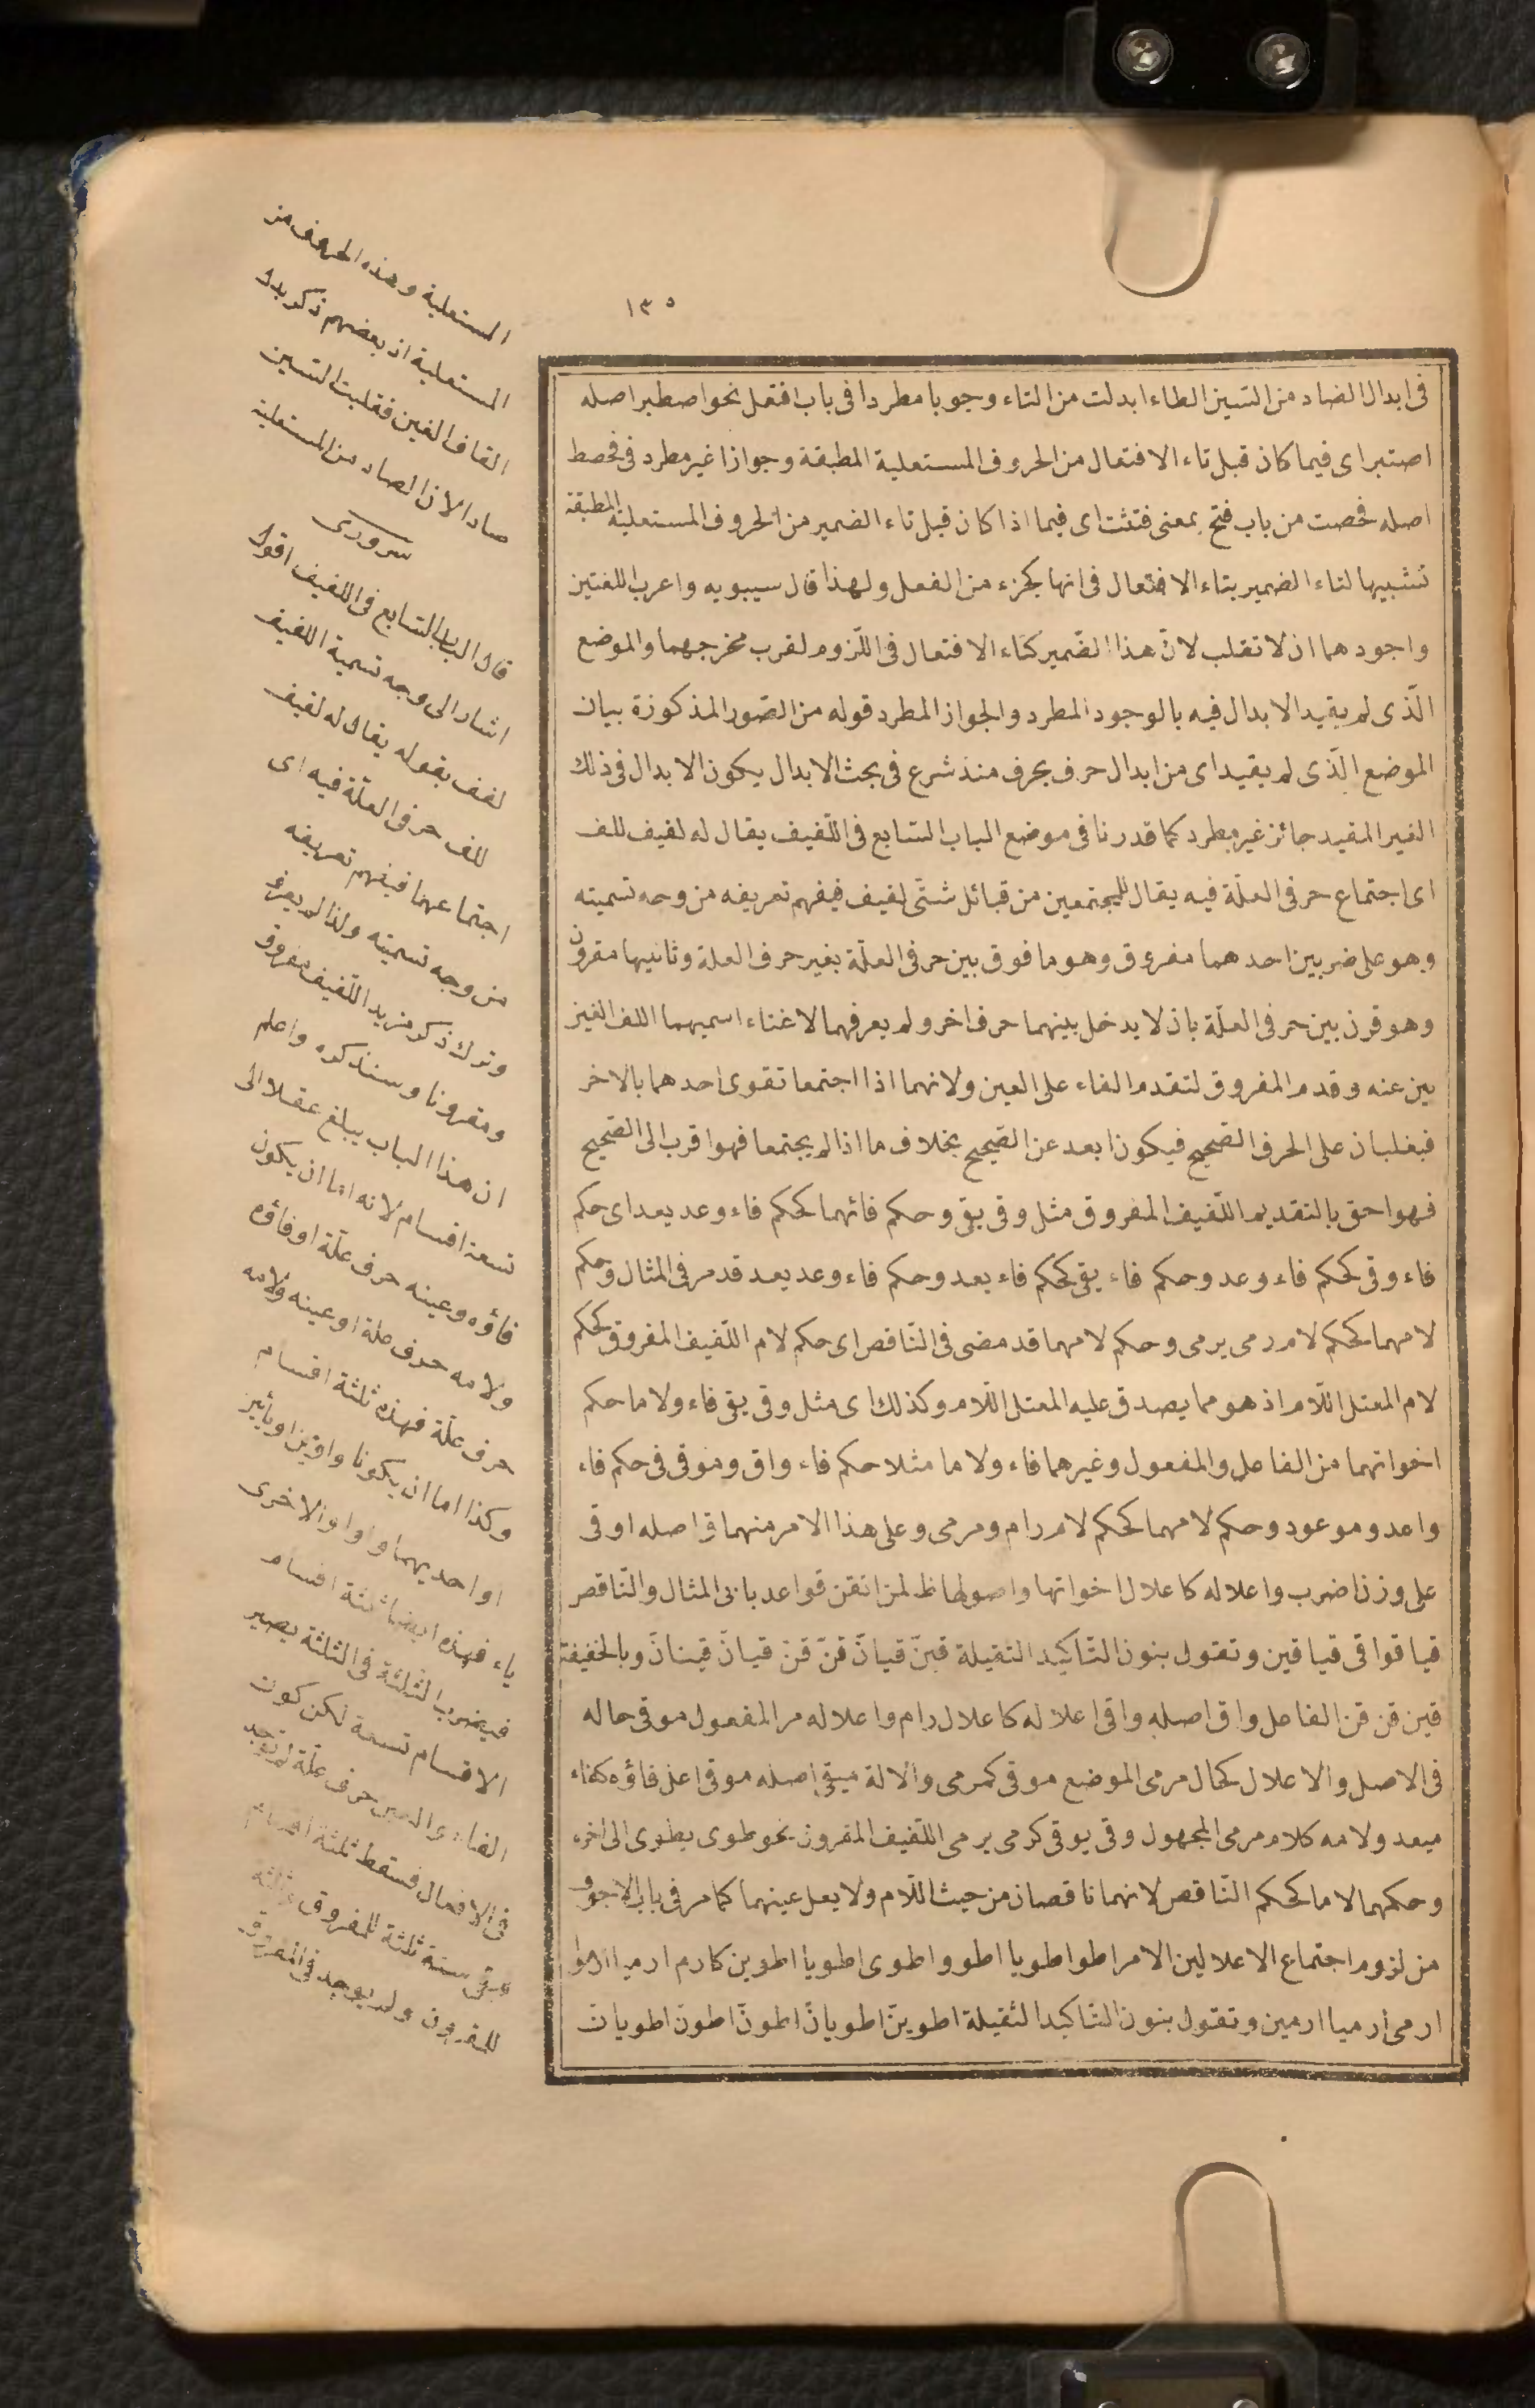 ١٣٥
فى ابدال الضاد من السين الطاء ابدلت من التاء وجوبا مطردا فى باب افتعل نحو اصطبر اصله
اصتبر اى فيما كان قبل تاء الافتعال من الحروف المستعلية المطبقة وجوازا غير مطرد فى فحصط
اصله فحصت من باب فتح بمعنى فتشت اى فيما اذا كان قبل تاء الضمير من الحروف المستعلية المطبقة
تشبيها لتاء الضمير بتاء الافتعال فى انها كجزء من الفعل ولهذا قال سيبويه واعرب اللغتين
واجودهما ان لا تقلب لانّ هذا الضّمير كتاء الافتعال فى اللّزوم لقرب مخرجهما والموضع
الّذى لم يقيد الابدال فيه بالوجود المطرد والجواز المطرد قوله من الصّور المذكورة بيان
الموضع الّذى لم يقيد اى من ابدال حرف بحرف منذ شرع فى بحث الابدال يكون الابدال فى ذلك
الغير المقيد جائز غير مطرد كما قدرنا فى موضع الباب السّابع فى اللّفيف يقال له لفيف للف
اى اجتماع حرفى العلّة فيه يقال للمجتمعين من قبائل شتّى لفيف فيفهم تعريفه من وجه تسميته
وهو على ضربين احدهما مفروق وهو ما فوق بين حرفى العلّة بغير حرف العلة وثانيها مقرون
وهو قرن بين حرفى العلّة بان لا يدخل بينهما حرف اخر ولم يعرفهما لاغناء اسميهما اللف الغيز
بين عنه وقدم المفروق لتقدم الفاء على العين ولانهما اذا اجتمعا تقوى احدهما بالاخر
فيغلبان على الحرف الصّحيح فيكون ابعد عن الصّحيح بخلاف ما اذا لم يجتمعا فهو اقرب الى الصّحيح
فهو احق بالتقديم اللّفيف المفروق مثل وقى يقى وحكم فائهما كحكم فاء وعد يعد اى حكم
فاء وقى كحكم فاء وعد وحكم فاء يقى كحكم فاء يعد وحكم فاء وعد يعد قد مر فى المثال وحكم
لامهما كحكم لام رمى يرمى وحكم لامهما قد مضى فى النّاقص اى حكم لام اللّفيف المفروق كحكم
لام المعتل اللّام اذ هو مما يصدق عليه المعتل اللّام وكذلك اى مثل وقى يقى فاء ولاما حكم
اخواتهما من الفاعل والمفعول وغيرهما فاء ولاما مثلا حكم فاء واق وموقى فى حكم فاء
واعد وموعود وحكم لامهما كحكم لام رام ومرمى وعلى هذا الامر منهما ق اصله اوقى
على وزن اضرب واعلاله كاعلال اخواتها واصولها ظ لمن اتقن قواعد بابى المثال والنّاقص
قيا قوا قى قيا قين وتقول بنون التّاكيد الثقيلة قينّ قيانّ قنّ قنّ قيانّ قينانّ وبالخفيفة
قين قن قن الفاعل واق اصله واقى اعلاله كاعلال رام واعلاله مر المفعول موقى حاله
فى الاصل والاعلال كحال مرمى الموضع موقى كمرمى والالة ميقى اصله موقى اعل فاؤه كفاء
ميعد ولامه كلام مرمى المجهول وقى يوقى كرمى يرمى اللّفيف المقرون نحو طوى يطوى الى اخره
وحكمهما لاما كحكم النّاقص لانهما ناقصان من حيث اللّام ولا يعل عينهما كما مر فى باب الاجوف
من لزوم اجتماع الاعلالين الامر اطو اطويا اطووا اطوى اطويا اطوين كارم ارميا ارموا
ارمى ارميا ارمين وتقول بنون التّاكيد الثقيلة اطوينّ اطويانّ اطونّ اطونّ اطويانّ
المستعلية وهذه الحروف من
المستعلية اذ بعضهم ذكر بدل
القاف الغين فقلبت السين
صاد الان الصاد من المستعلية
سرورى
قال الباب السّابع فى اللفيف اقول
اشار الى وجه تسمية اللفيف
لفف بقوله يقال له لفيف
للف حرفى العلّة فيه اى
اجتماعهما فيفهم تعريفه
من وجه تسميته ولذا لم يعرف
وترك ذكر مزيد اللّفيف مفروق
ومقرونا وسنذكره واعلم
ان هذا الباب يبلغ عقلا الى
تسعة اقسام لانه اما ان يكون
فاؤه وعينه حرف علّة او فاؤه
ولامه حرف علة او عينه ولامه
حرف علّة فهذه ثلثة اقسام
وكذا اما ان يكونا واوين او يائين
او احديهما واوا والاخرى
ياء فهذه ايضا ثلثة اقسام
فيضرب الثلثة فى الثلثة يصير
الاقسام تسعة لكن كون
الفاء والعين حرف علّة لم توجد
فى الافعال فسقط ثلثة اقسام
وبقى ستة ثلثة للمفروق وثلثة
للمقرون ولم يوجد فى المفروق